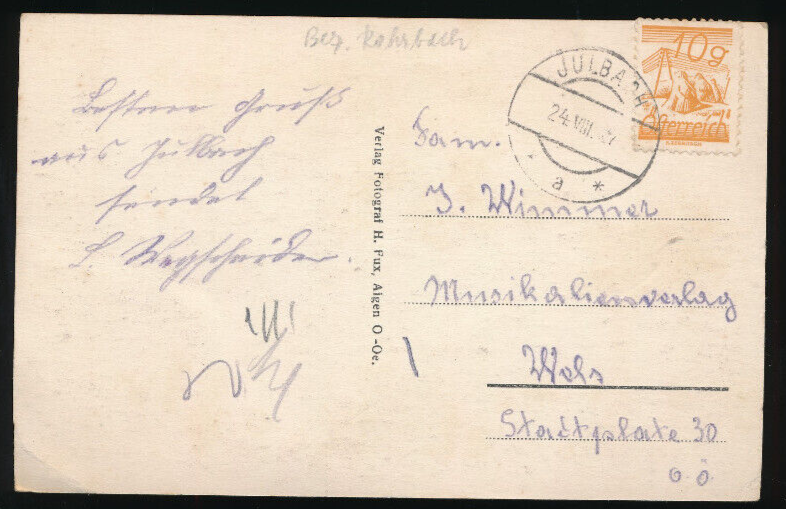 Bez. Rohrbach
Besten Gruß
aus Julbach
sendet
Wegscheider.
Verlag Fotograf H. Fux, Aigen O.-Oe.
JULBACH
24.VIII.
a *
10g
Österreich
Fam.
J. Wimmer
Musikalienverlag
Wels
Stadtplatz 30
O.Ö